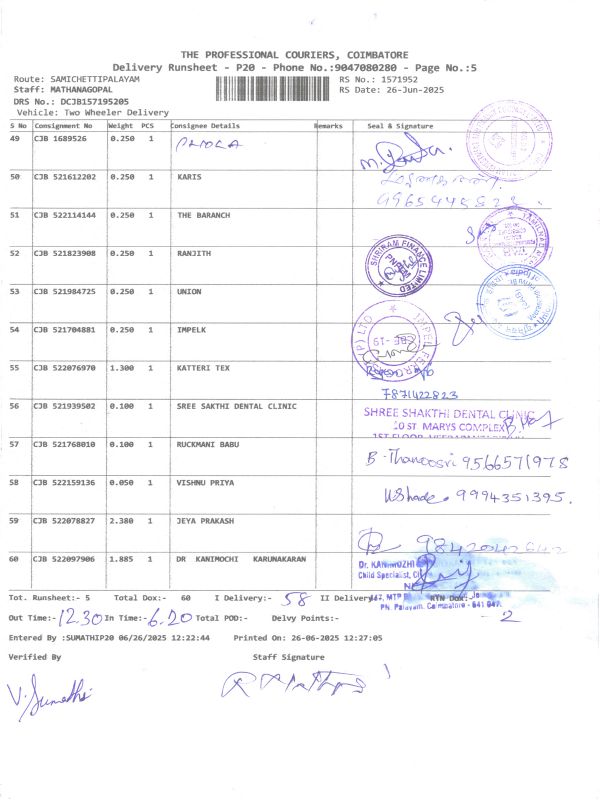 THE PROFESSIONAL COURIERS, COIMBATORE
Delivery Runsheet - P20 - Phone No.:9047080280 - Page No.:5
Route: SAMICHETTIPALAYAM RS No.: 1571952
Staff: MATHANAGOPAL RS Date: 26-Jun-2025
DRS No.: DCJB157195205
Vehicle: Two Wheeler Delivery
S No Consignment No Weight PCS Consignee Details Remarks Seal & Signature
49 CJB 1689526 0.250 1
50 CJB 521612202 0.250 1 KARIS
51 CJB 522114144 0.250 1 THE BARANCH
52 CJB 521823908 0.250 1 RANJITH SHRIRAM FINANCE LIMITED
53 CJB 521984725 0.250 1 UNION
54 CJB 521704881 0.250 1 IMPELK
55 CJB 522076970 1.300 1 KATTERI TEX
7871422823
56 CJB 521939502 0.100 1 SREE SAKTHI DENTAL CLINIC SHREE SHAKTHI DENTAL CLINIC
10 ST MARYS COMPLEX
57 CJB 521768010 0.100 1 RUCKMANI BABU B. Thanoosri 9566571978
58 CJB 522159136 0.050 1 VISHNU PRIYA 9994351395.
59 CJB 522078827 2.380 1 JEYA PRAKASH 9842042642
60 CJB 522097906 1.885 1 DR KANIMOCHI KARUNAKARAN Dr. KANIMOZHI
Child Specialist,
Tot. Runsheet:- 5 Total Dox:- 60 I Delivery:- 58 II Delivery:- RTN Dox:-
PN. Palayam, Coimbatore - 641 047.
Out Time:- 12.30 In Time:- 6.20 Total POD:- Delvy Points:- 2
Entered By :SUMATHIP20 06/26/2025 12:22:44 Printed On: 26-06-2025 12:27:05
Verified By Staff Signature
V. Sumathi